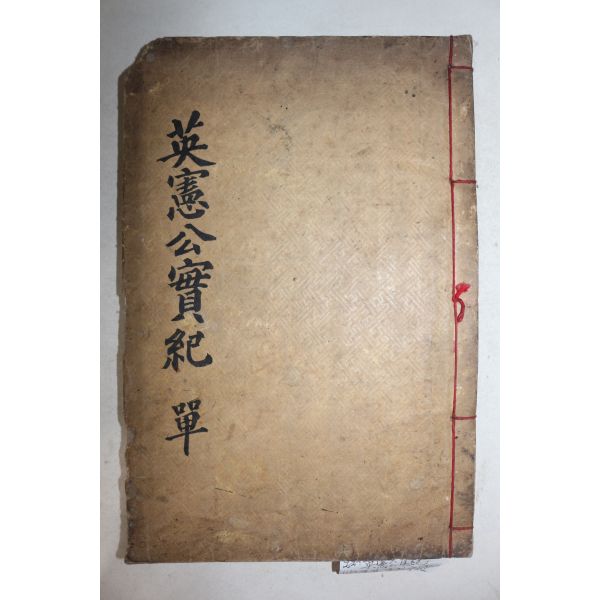 英憲公實紀 單